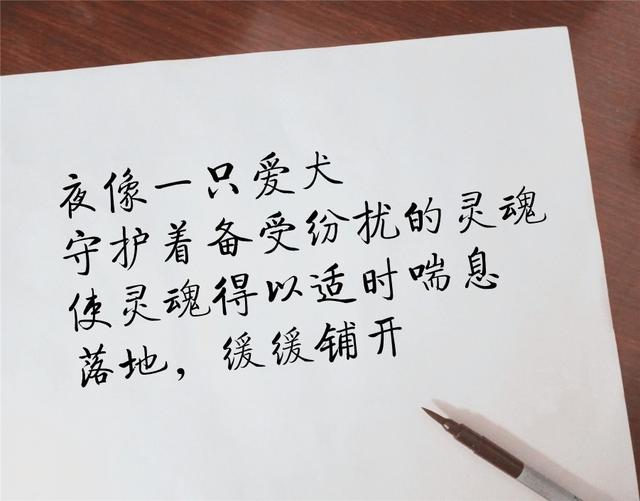 夜像一只爱犬
守护着备受纷扰的灵魂
使灵魂得以适时喘息
落地，缓缓铺开